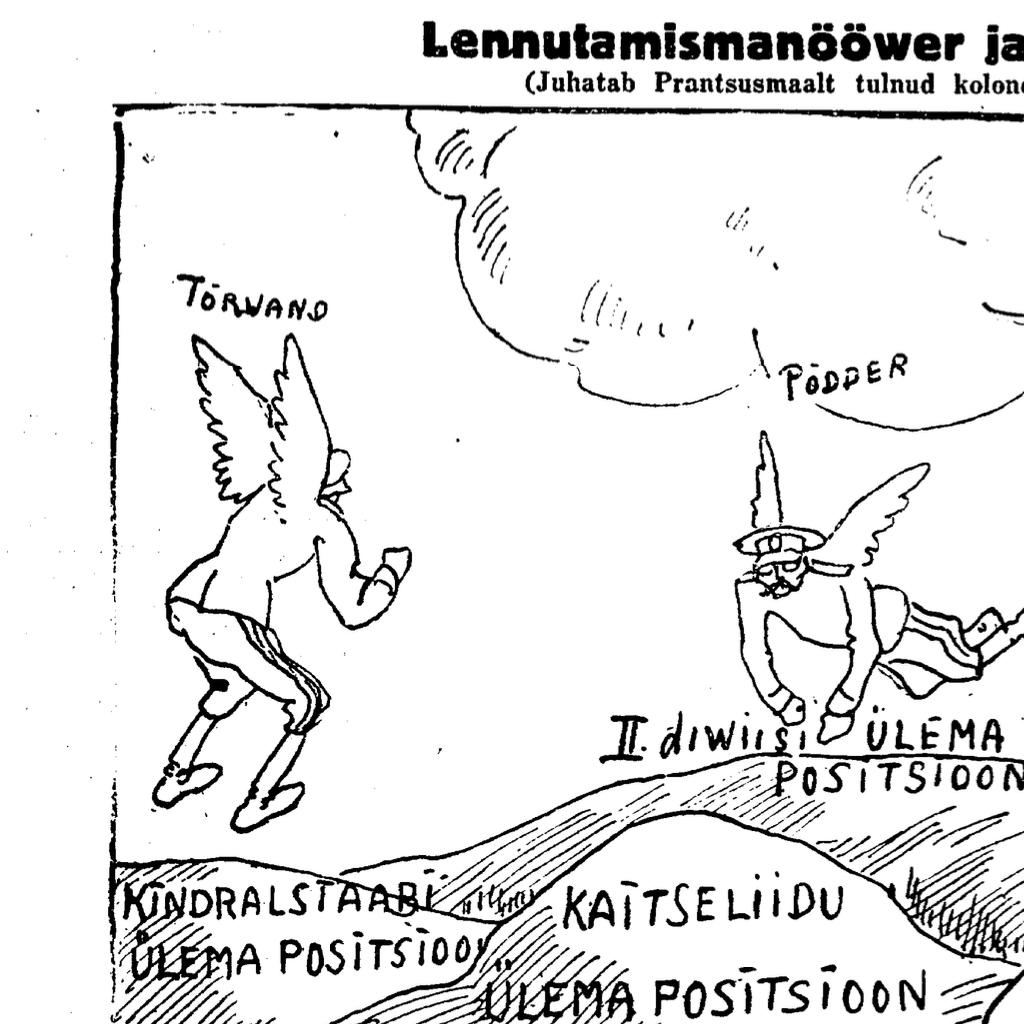 Lennutamismanööwer ja
(Juhatab Prantsusmaalt tulnud kolone
TÕRWAND
PÕDDER
II. diwiisi ÜLEMA
POSITSIOON
KINDRALSTAABI
ÜLEMA POSITSIOON
KAITSELIIDU
ÜLEMA POSITSIOON